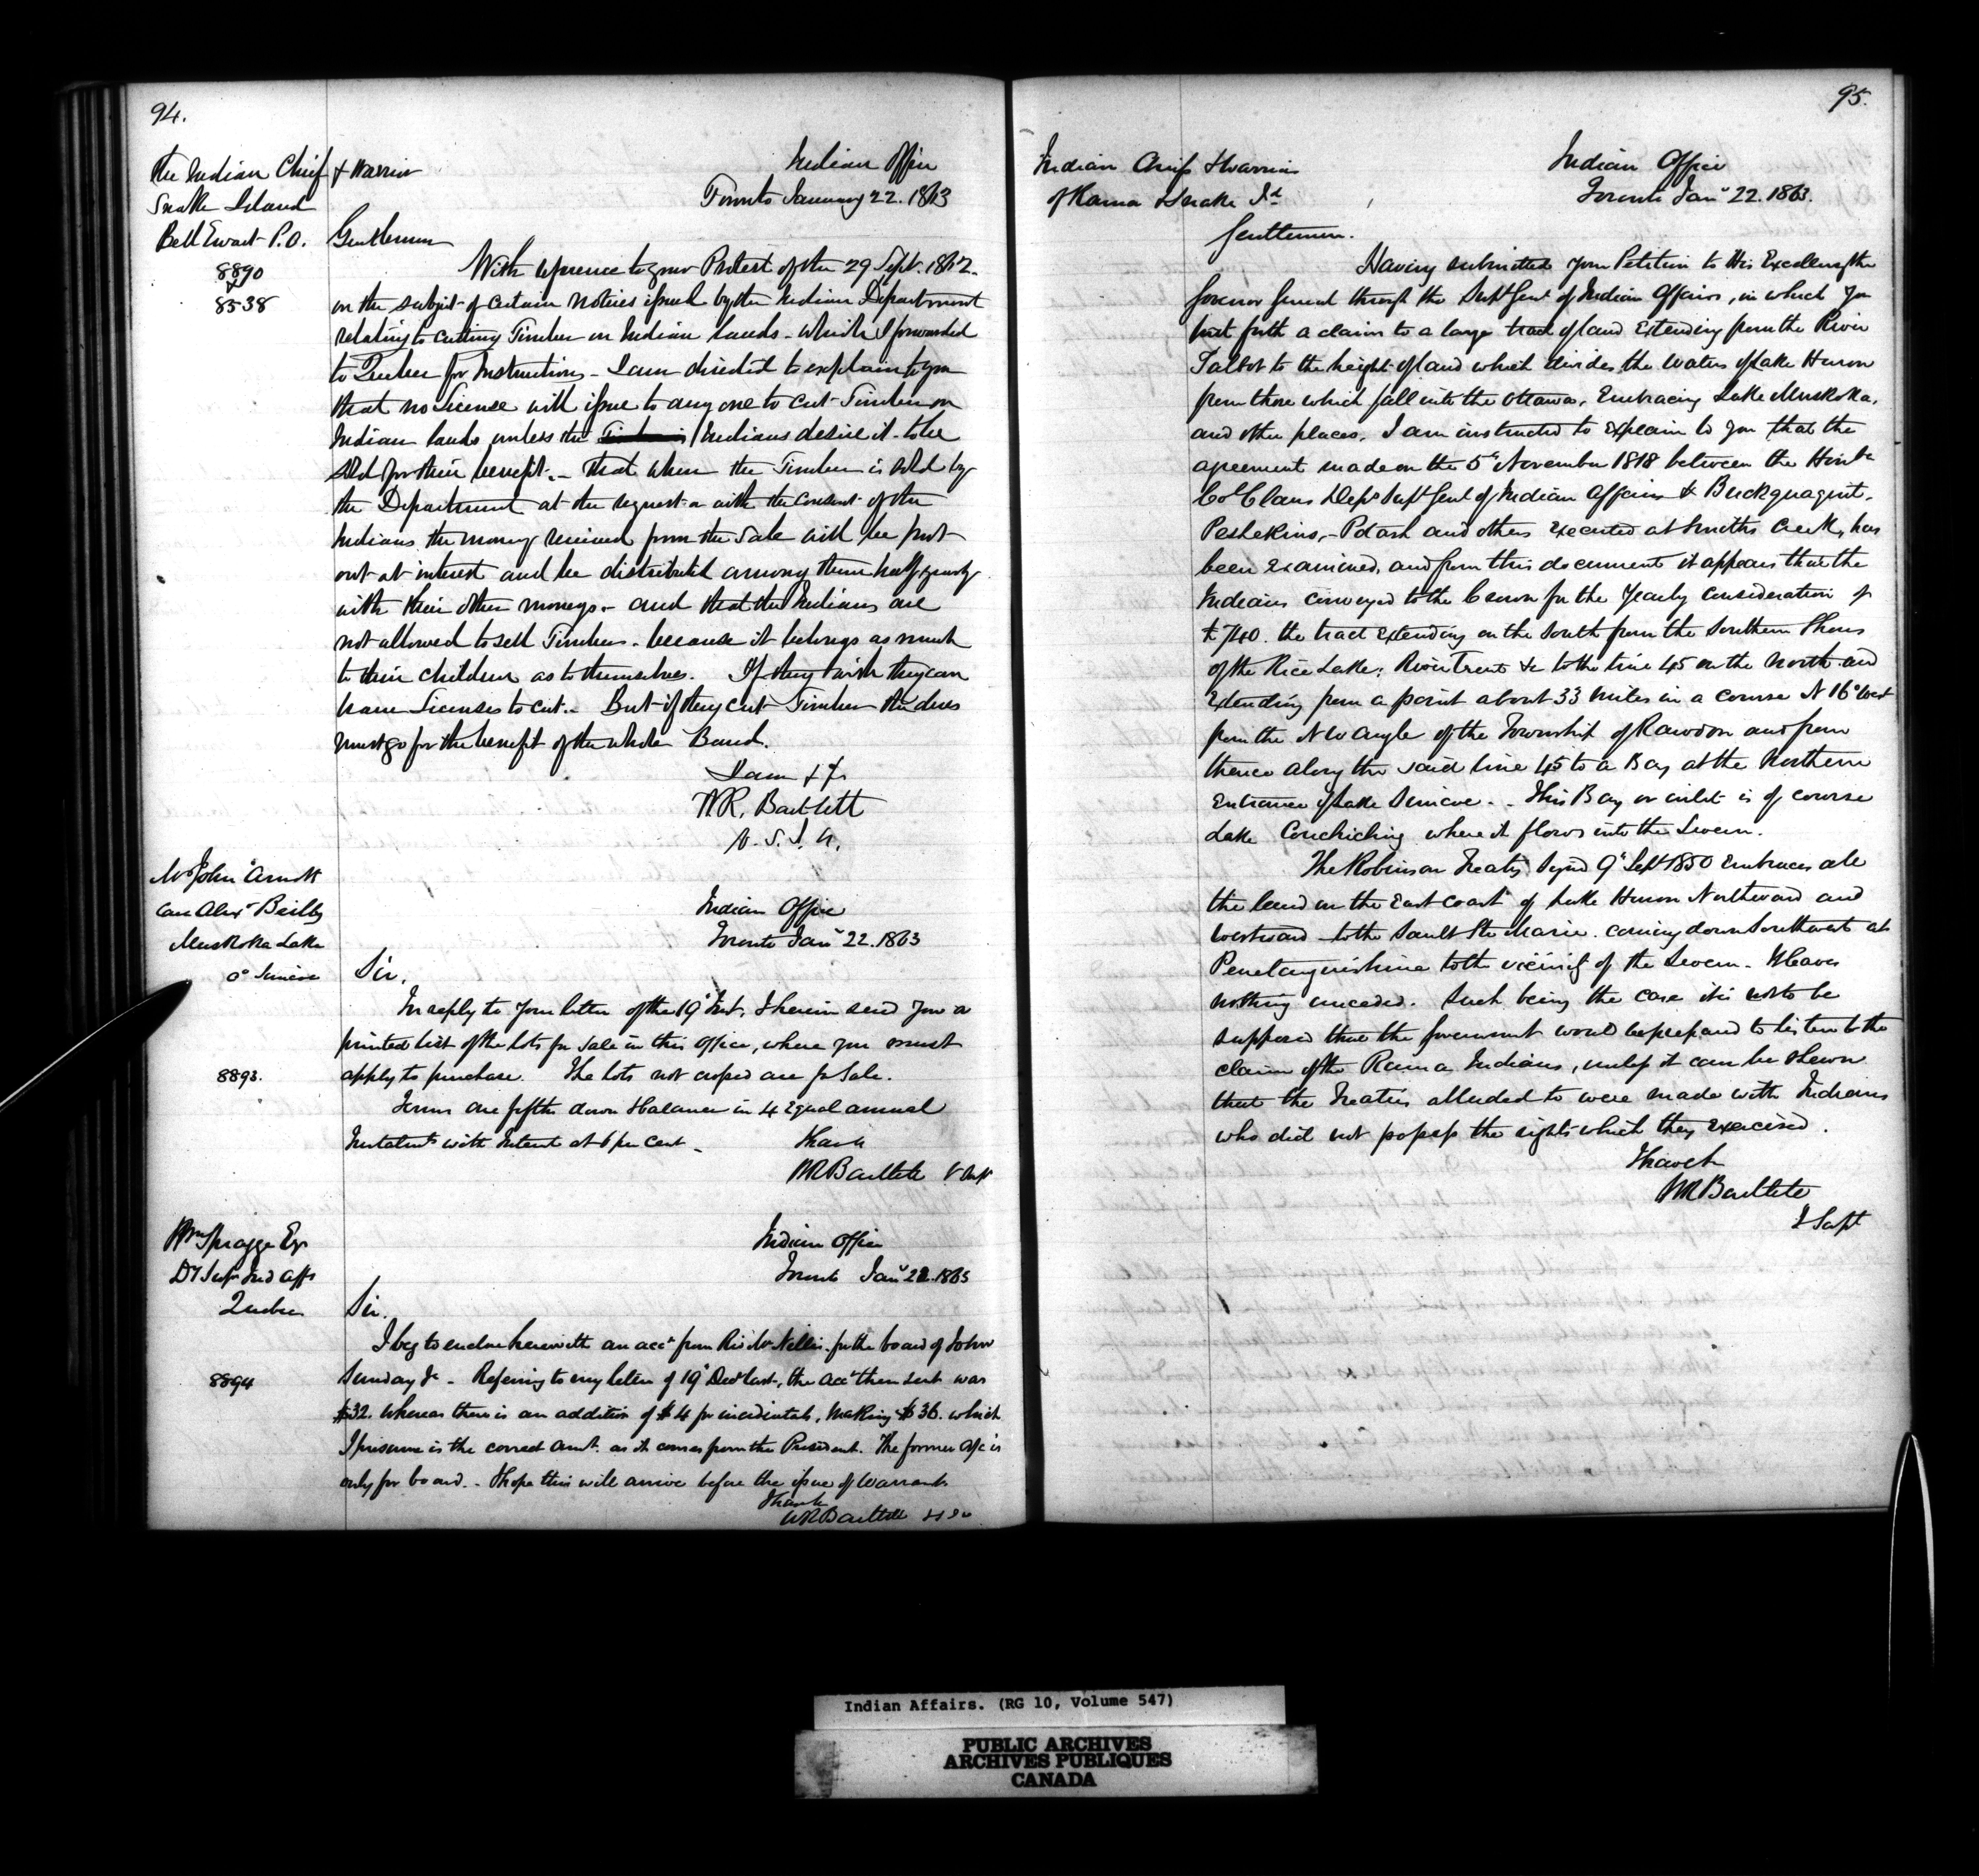 94.
The Indian Chief & Warrior
Snake Island
Bell Ewart P.O.
8890
&
8538
Indian Office
Toronto January 22. 1863
Gentlemen
With reference to your Protest of the 29 Sept. 1862.
on the subject of certain notices issued by the Indian Department
relating to cutting Timber on Indian Lands - which I forwarded
to Quebec for Instructions - I am directed to explain to you
that no License will issue to any one to cut Timber on
Indian lands unless the Indians desire it to be
sold for their benefit. - That when the Timber is sold by
the Department at the request or with the consent of the
Indians the money received from the Sale will be put
out at interest and be distributed among them half yearly
with their other moneys - and that the Indians are
not allowed to sell Timber - because it belongs as much
to their children as to themselves. If they wish they can
have Licenses to cut. - But if they cut Timber the dues
must go for the benefit of the whole Band.
I am &c
W.R. Bartlett
V. S. I. A.
Mr John Arnott
Care Alexr Beilby
Muskoka Lake
Co Simcoe
8893.
Indian Office
Toronto Jany 22. 1863
Sir,
In reply to your letter of the 19th Inst. I herein send you a
printed list of the lots for sale in this office, where you must
apply to purchase. The lots not crossed are for Sale.
Terms one fifth down & balance in 4 equal annual
Instalmts with Interest at 6 per cent -
I have &c
WR Bartlett V Supt
Wm Spragge Esq
Dy Supt Ind Affs
Quebec
8894
Indian Office
Toronto Jany 22. 1863
Sir.
I beg to enclose herewith an acct from Revd Mr Nelles for the board of John
Sunday Jr - Referring to my letter of 19th Decr last, the acct then sent was
$32. whereas there is an addition of $4 for incidentals, making $36. which
I presume is the correct amt. as it comes from the President. The former a/c is
only for board. - I hope this will arrive before the issue of Warrants
I have &c
WR Bartlett
95.
Indian Chiefs & Warriors
of Rama & Snake Id
Indian Office
Toronto Jany 22. 1863.
Gentlemen.
Having submitted your Petition to His Excellency the
Governor General through the Supt Genl of Indian Affairs, in which you
put forth a claim to a large tract of land Extending from the River
Talbot to the height of land which divides the Waters of Lake Huron
from those which fall into the Ottawa, Embracing Lake Muskoka,
and other places. I am instructed to explain to you that the
agreement made on the 5th November 1818 between the Honble
Col Claus Depy Supt Genl of Indian Affairs & Buckquaquet,
Pishikins, - Potash and others executed at Smiths Creek, has
been examined, and from this document it appears that the
Indians conveyed to the Crown for the Yearly consideration of
£740. the tract extending on the South from the Southern Shores
of the Rice Lake; River Trent &c to the line 45 on the North and
extending from a point about 33 miles in a course N 16° West
from the N W angle of the Township of Rawdon and from
thence along the said line 45 to a Bay at the Northern
Entrance of Lake Simcoe. - This Bay or inlet is of course
Lake Couchiching where it flows into the Severn.
The Robinson Treaty Signed 9th Sept 1850 embraces all
the land on the East Coast of Lake Huron Northward and
Westward to the Sault Ste Marie. coming down Southwest at
Penetanguishine to the vicinity of the Severn - & leaves
nothing unceded. Such being the case it is not to be
supposed that the Government would be prepared to listen to the
claim of the Rama Indians, unless it can be shewn
that the Treaties alluded to were made with Indians
who did not possess the rights which they exercised.
I have &c
WR Bartlett
V Supt
Indian Affairs. (RG 10, Volume 547)
PUBLIC ARCHIVES
ARCHIVES PUBLIQUES
CANADA